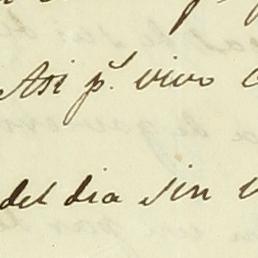 Asi p.r vivo
del dia sin